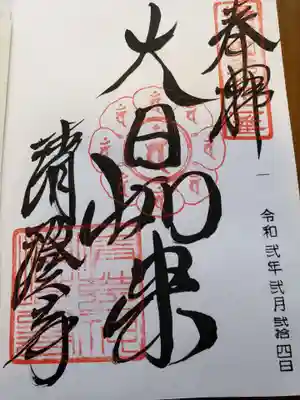 奉拝
大日如来
清澄寺
令和弐年弐月弐拾四日